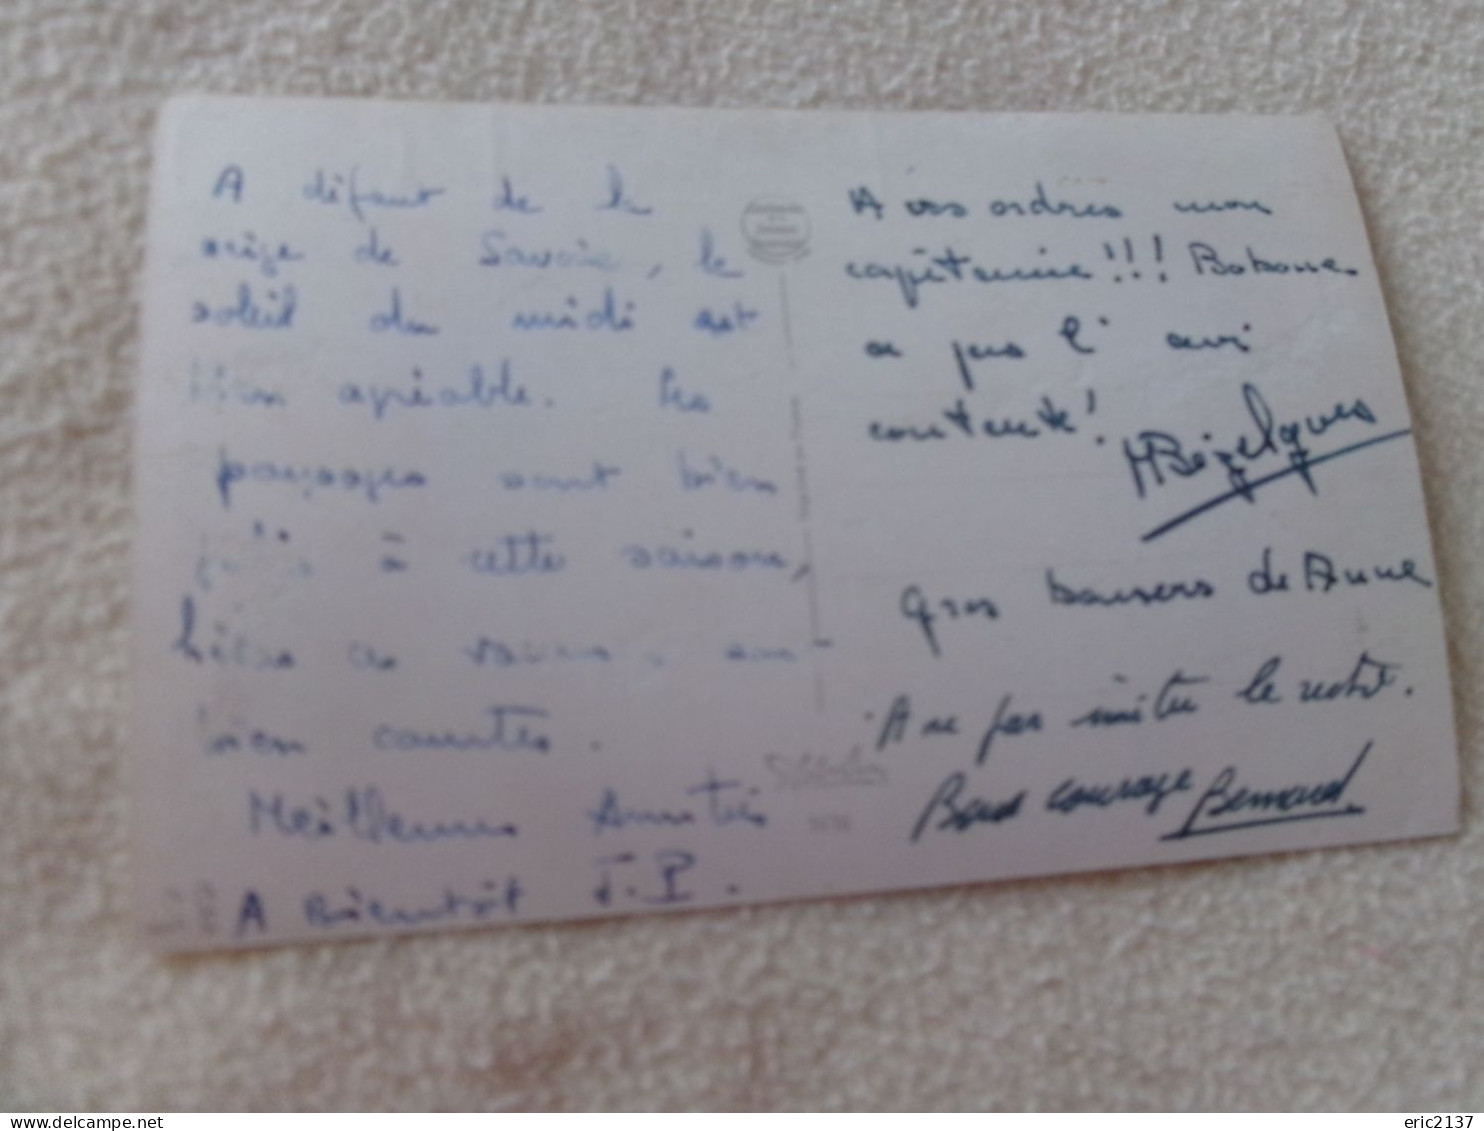 A défaut de la
neige de Savoie, le
soleil du midi est
bien agréable. Les
paysages sont bien
à cette saison,
bien
bien courtes.
Meilleures Amitiés
A Bientôt J.P.
A vos ordres mon
capitenine!!! Bobonne
a pas l'
contente!
gros baisers de Anne
A ne pas imiter le
Bon courage Bernard
eric2137